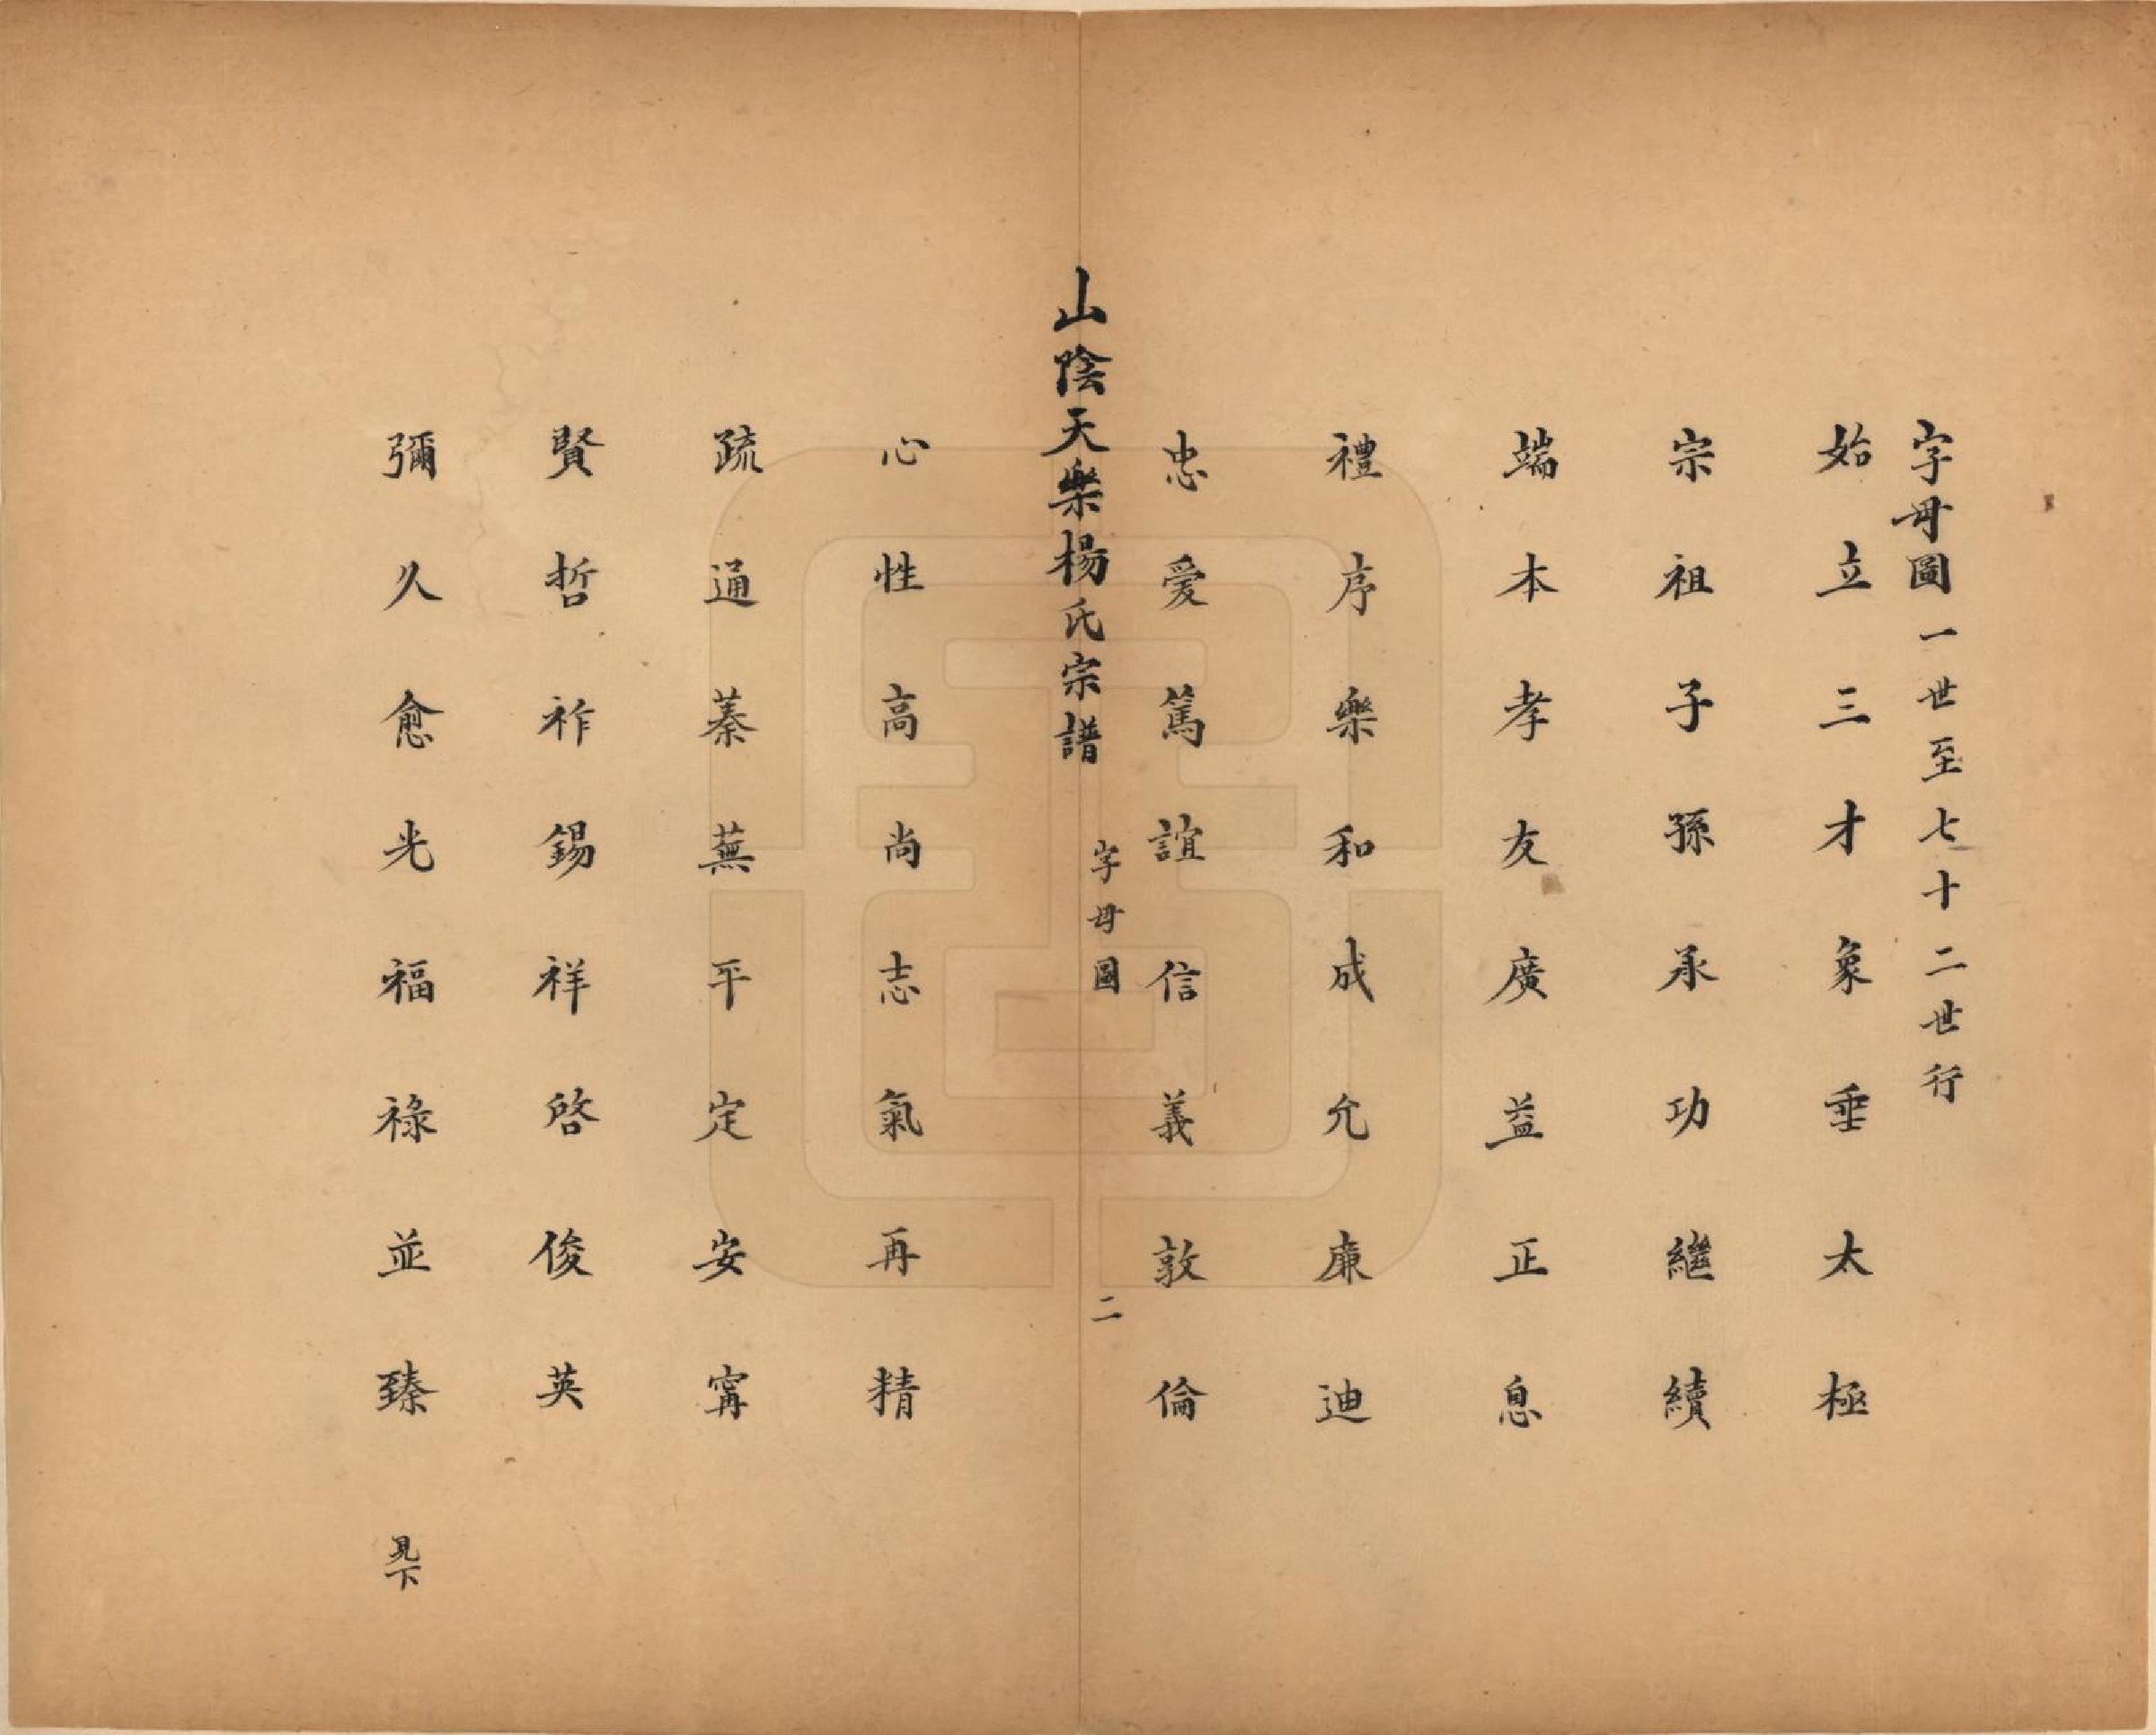 字母圖一世至七十二世行
始立三才象垂太極
宗祖子孫承功繼續
端本孝友廣益正息
禮序樂和成允廉迪
忠愛篤誼信義敦倫
山陰天樂楊氏宗譜
字母圖
二
心性高尚志氣再精
疏通蓁蕪平定安甯
賢哲祚錫祥啓俊英
彌久愈光福祿並臻
見下